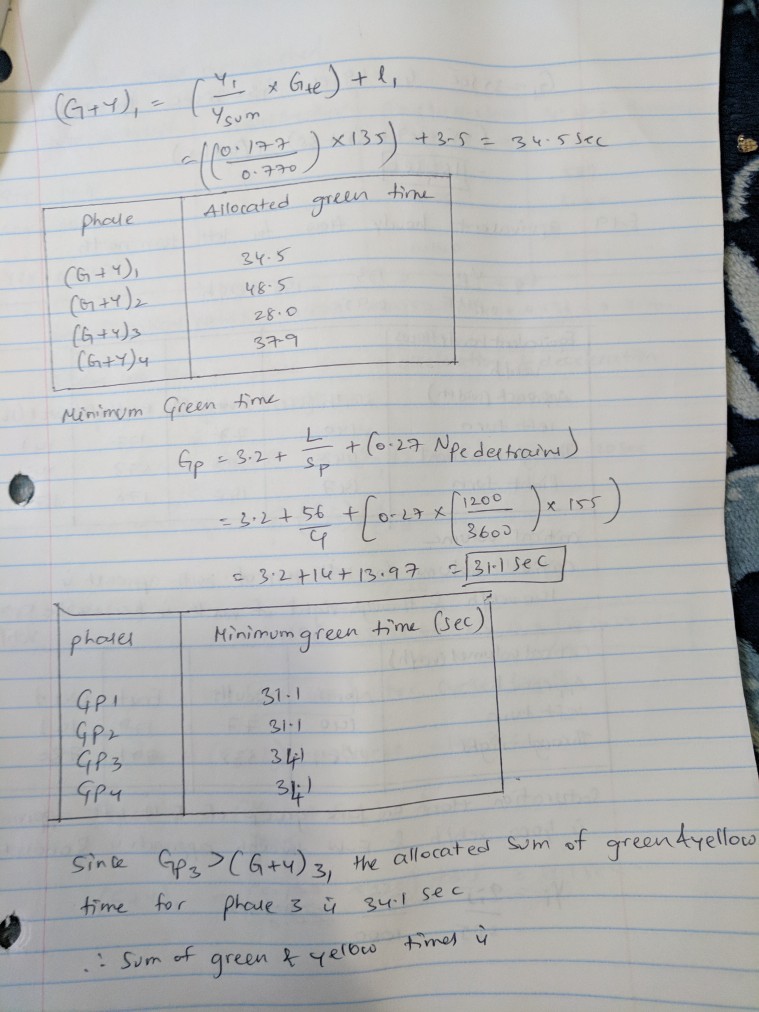 (G+Y)₁ = (Y₁/Ysum × Gte) + l₁
= ((0.177/0.770) × 135) + 3.5 = 34.5 sec
phase Allocated green time
(G+Y)₁ 34.5
(G+Y)₂ 48.5
(G+Y)3 28.0
(G+Y)4 37.9
Minimum Green time
Gp = 3.2 + L/Sp + (0.27 Npedestrains)
= 3.2 + 56/4 + [0.27 × (1200/3600) × 155)
= 3.2 + 14 + 13.97 = 31.1 sec
phases Minimum green time (sec)
GP1 31.1
GP2 31.1
GP3 34.1
GP4 34.1
Since GP3 > (G+Y)3, the allocated sum of green & yellow
time for phase 3 is 34.1 sec
∴ Sum of green & yellow times is